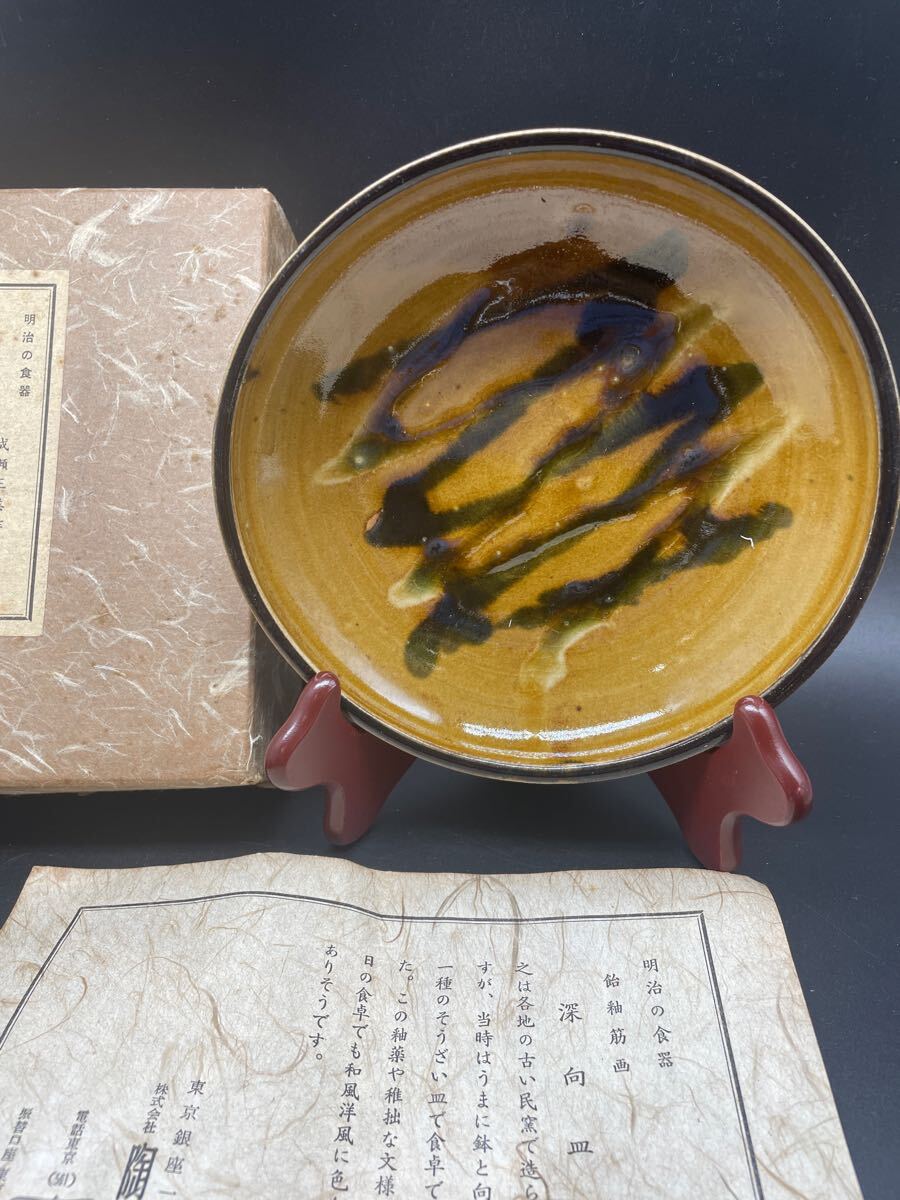 明治の食器
成瀬
明治の食器
飴釉筋画
深向皿
之は各地の古い民窯で造ら
すが、当時はうまに鉢と向
一種のそうざい皿で食卓で
た。この釉薬や稚拙な文様
日の食卓でも和風洋風に色
ありそうです。
東京銀座
株式会社 陶
電話東京(561)
振替口座東